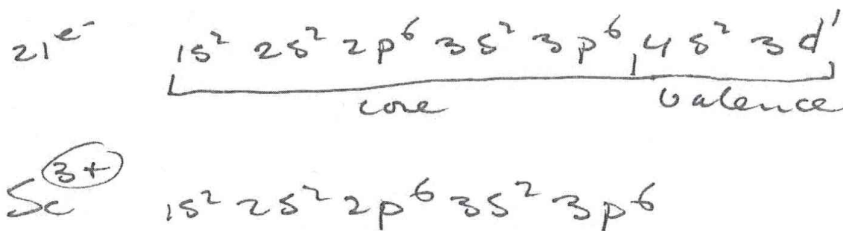 21 e⁻ 1s² 2s² 2p⁶ 3s² 3p⁶ 4s² 3d¹
core valence
Sc³⁺ 1s² 2s² 2p⁶ 3s² 3p⁶